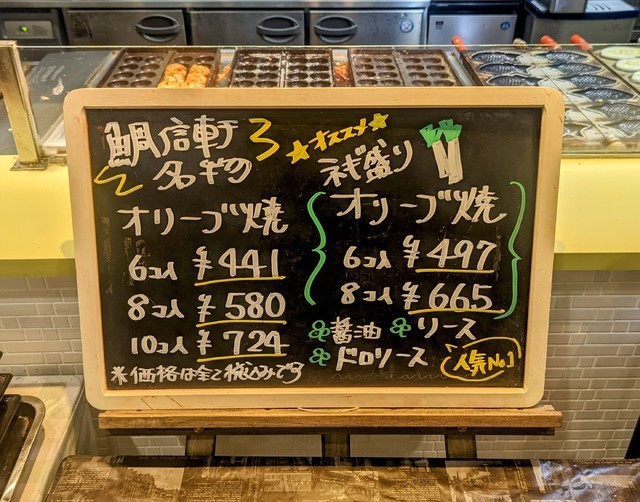 鯛信軒
名物
オリーブ焼
6コ入 ¥441
8コ入 ¥580
10コ入 ¥724
※価格は全て税込みです
★オススメ★
ネギ盛り
オリーブ焼
6コ入 ¥497
8コ入 ¥665
醤油 ソース
ドロソース
人気No1